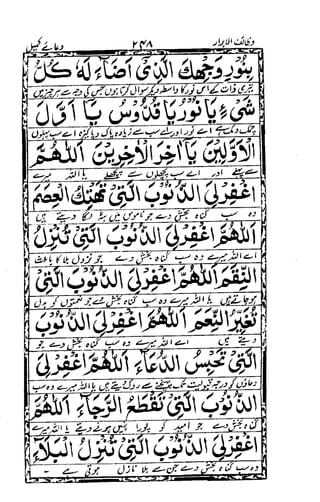 وظائف الابرار ۲۴۸ دعائے کمیل
بِنُورِ وَجْهِكَ الَّذِیْ اَضَاءَ لَهٗ كُلُّ
تیری ذات کے اس نور کا واسطہ دیکر سوال کرتا ہوں جس کی وجہ سے ہر چیز میں
شَیْءٍ یَا نُوْرُ یَا قُدُّوْسُ یَا اَوَّلَ
چمک دمک ہے اے نور اور اے سب سے زیادہ پاک و پاکیزہ اے سب پہلوں
الْاَوَّلِیْنَ یَا اٰخِرَ الْاٰخِرِیْنَ اَللّٰهُمَّ
سے پہلے اور اے سب پچھلوں سے پچھلے یا اللہ میرے
اغْفِرْ لِیَ الذُّنُوْبَ الَّتِیْ تَهْتِكُ الْعِصَمَ
وہ سب گناہ بخش دے جو ناموس میں بٹہ لگا دیتے ہیں
اَللّٰهُمَّ اغْفِرْ لِیَ الذُّنُوْبَ الَّتِیْ تُنْزِلُ
اے اللہ میرے وہ سب گناہ بخش دے جو نزول بلا کا باعث
النِّقَمَ اَللّٰهُمَّ اغْفِرْ لِیَ الذُّنُوْبَ الَّتِیْ
ہو جاتے ہیں یا اللہ میرے وہ سب گناہ بخش دے جو نعمتوں کو بدل
تُغَیِّرُ النِّعَمَ اَللّٰهُمَّ اغْفِرْ لِیَ الذُّنُوْبَ
دیتے ہیں اے اللہ میرے وہ سب گناہ بخش دے جو
الَّتِیْ تَحْبِسُ الدُّعَاءَ اَللّٰهُمَّ اغْفِرْ لِیَ
دعاؤں کو درجہ قبولیت تک پہنچنے سے روک دیتے ہیں یا اللہ میرے وہ سب
الذُّنُوْبَ الَّتِیْ تَقْطَعُ الرَّجَاءَ اَللّٰهُمَّ
گناہ بخش دے جو امید کو پورا نہیں ہونے دیتے یا اللہ میرے
اغْفِرْ لِیَ الذُّنُوْبَ الَّتِیْ تُنْزِلُ الْبَلَاءَ
وہ سب گناہ بخش دے جن سے بلا نازل ہوتی ہے -